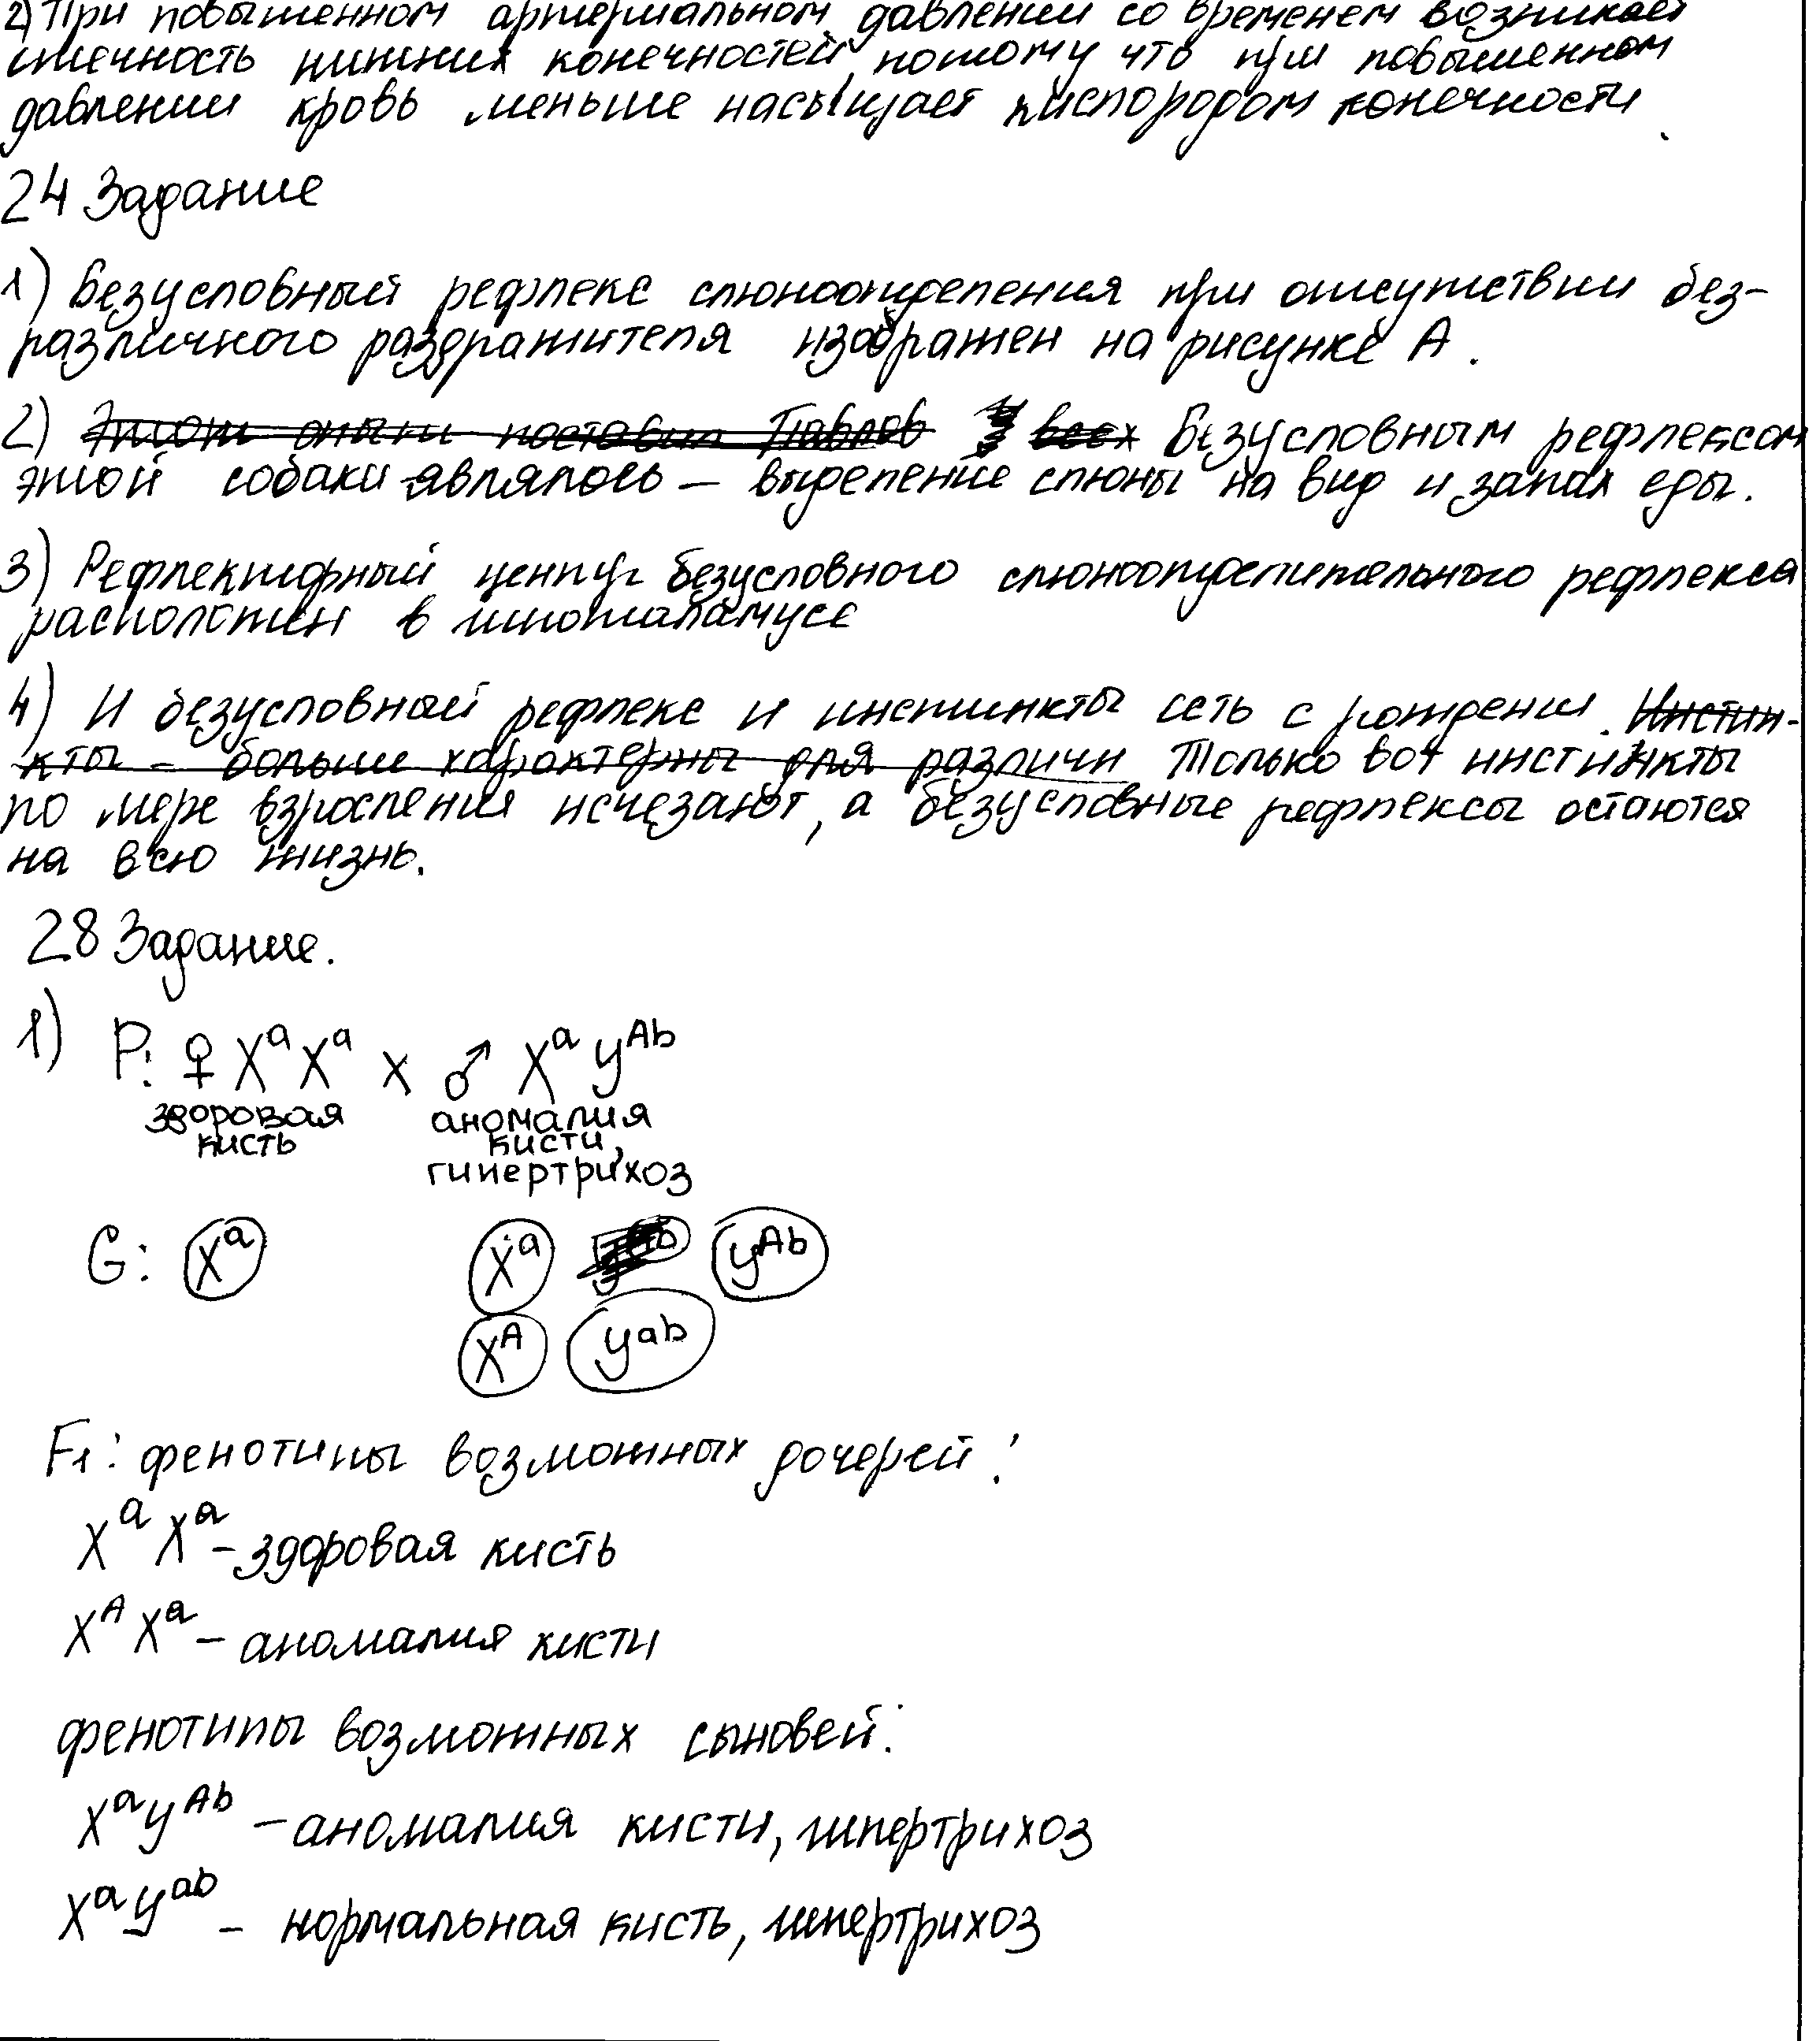 2) При повышенном артериальном давлении со временем возникает
отечность нижних конечностей, потому что при повышенном
давлении кровь меньше насыщает кислородом конечности.
24 Задание
1) Безусловный рефлекс слюноотделения при отсутствии без-
различного раздражителя изображен на рисунке А.
2) Этот опыт поставил Павлов У всех Безусловным рефлексом
этой собаки являлось – выделение слюны на вид и запах еды.
3) Рефлекторный центр безусловного слюноотделительного рефлекса
расположен в гипоталамусе
4) И безусловный рефлекс и инстинкты есть с рождения. Инстин-
кты – больше характерны для различи Только вот инстинкты
по мере взросления исчезают, а безусловные рефлексы остаются
на всю жизнь.
28 Задание.
1) P: ♀ XᵃXᵃ x ♂ Xᵃ Yᴬᵇ
здоровая аномалия
кисть кисти,
гипертрихоз
G: Xᵃ Xᵃ Yᴬᵇ
Xᴬ Yᵃᵇ
F1: фенотипы возможных дочерей:
XᵃXᵃ – здоровая кисть
XᴬXᵃ – аномалия кисти
фенотипы возможных сыновей:
XᵃYᴬᵇ – аномалия кисти, гипертрихоз
XᵃYᵃᵇ – нормальная кисть, гипертрихоз